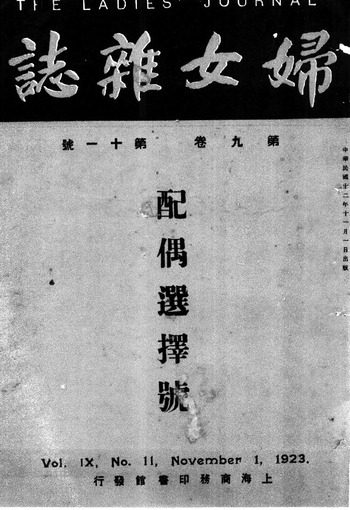 THE LADIES' JOURNAL
婦女雜誌
第九卷 第十一號
中華民國十二年十一月一日出版
配偶選擇號
Vol. IX, No. 11, November 1, 1923.
上海商務印書館發行